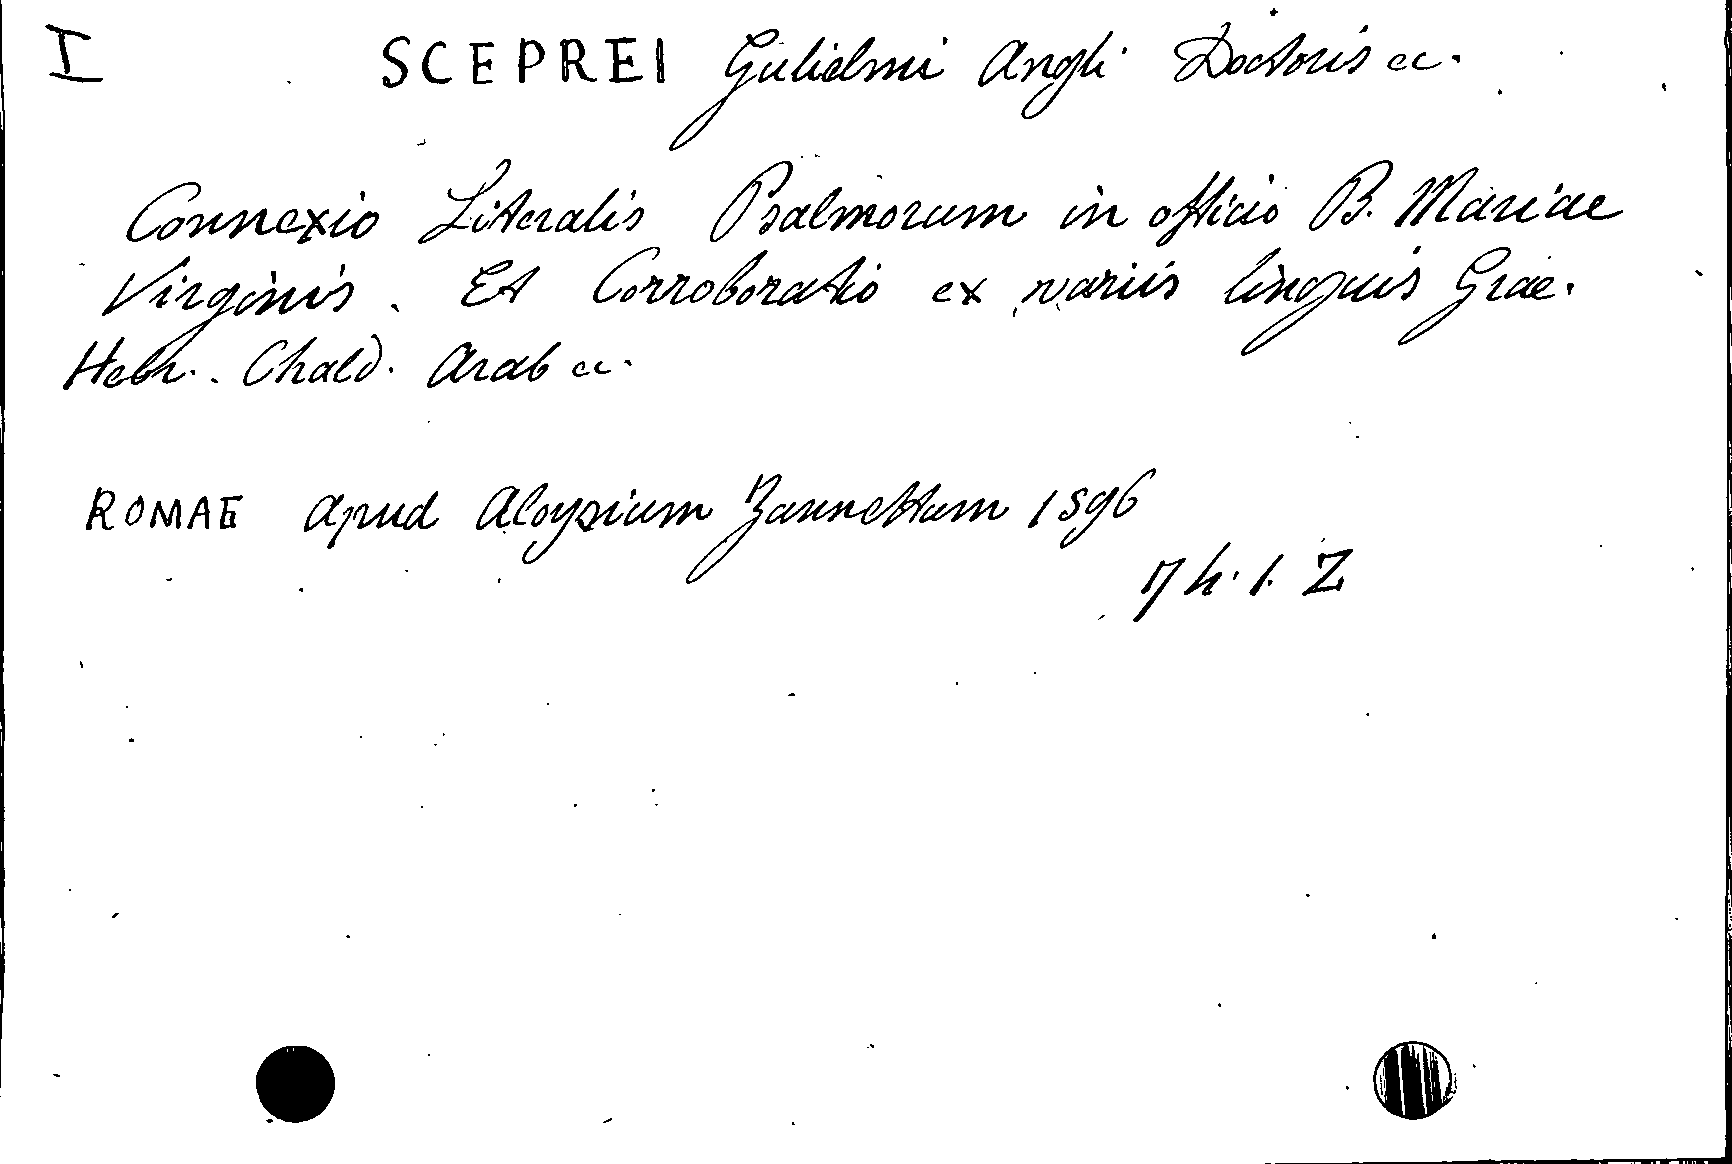 I SCEPREI Gulielmi Angli Doctoris cc.
Connexio Literalis Psalmorum in officio B. Mariae
Virginis. Et Corroboratio ex variis linguis Grae.
Hebr. Chald. Arab cc.
ROMAE apud Aloysium Zannettum 1596
17 h. 1. Z